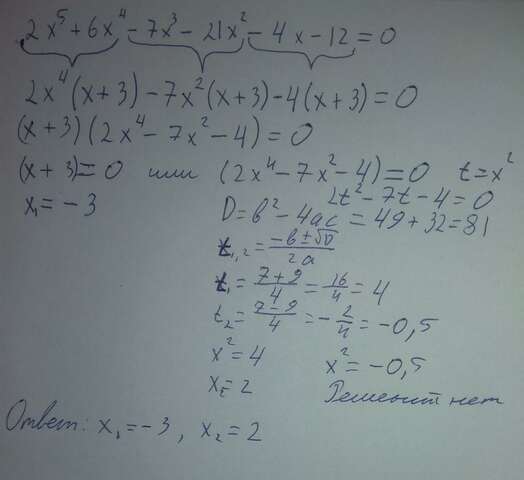 2x⁵ + 6x⁴ - 7x³ - 21x² - 4x - 12 = 0
2x⁴(x+3) - 7x²(x+3) - 4(x+3) = 0
(x+3)(2x⁴ - 7x² - 4) = 0
(x+3) = 0 или (2x⁴ - 7x² - 4) = 0 t = x²
2t² - 7t - 4 = 0
x₁ = -3 D = b² - 4ac = 49 + 32 = 81
t₁,₂ = (-b ± √D)/2a
t₁ = (7+9)/4 = 16/4 = 4
t₂ = (7-9)/4 = -2/4 = -0,5
x² = 4 x² = -0,5
x₂ = 2 Решений нет
Ответ: x₁ = -3, x₂ = 2